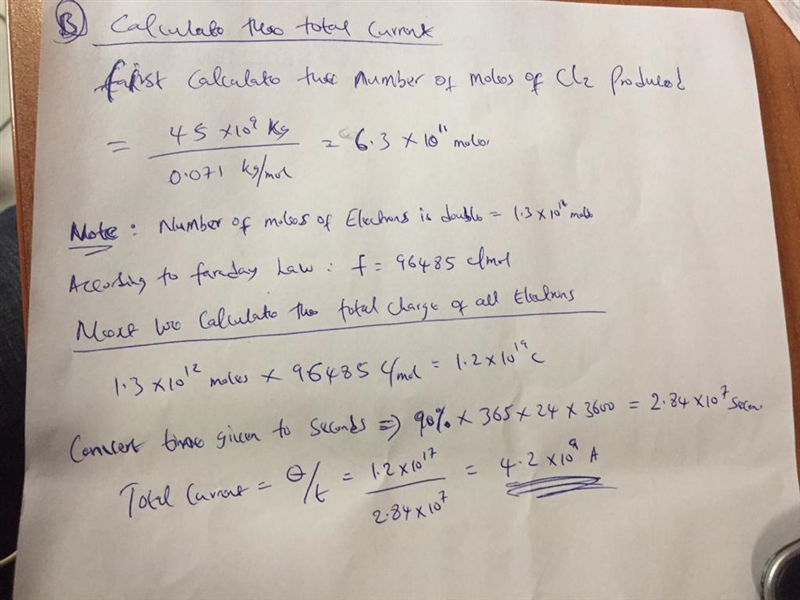 B Calculate the total Current
first Calculate the Number of moles of Cl2 Produced
= 45 ×10⁹ Kg / 0.071 kg/mol = 6.3 × 10¹¹ moles
Note : Number of moles of Electrons is double = 1.3 ×10¹² mols
According to faraday Law : f = 96485 C/mol
Next we Calculate the total charge of all Electrons
1.3 ×10¹² moles × 96485 C/mol = 1.2 ×10¹⁷ C
Convert time given to seconds ⇒ 90% × 365 × 24 × 3600 = 2.84 ×10⁷ Secon
Total Current = Q/t = 1.2 ×10¹⁷ / 2.84 ×10⁷ = 4.2 ×10⁹ A